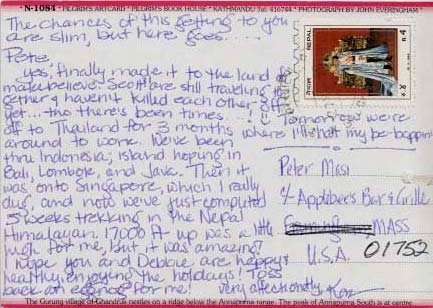 N-1084 • PILGRIMS ARTCARD • PILGRIM'S BOOK HOUSE • KATHMANDU Tel: 416744 • PHOTOGRAPH BY JOHN EVERINGHAM
The chances of this getting to you
are slim, but here goes.....
Pete,
yes, finally made it to the land of
make believe. Scott are still traveling to-
gether & haven't killed each other off
yet...tho there's been times...! Tomorrow we're
off to Thailand for 3 months where I'll
around to work. We've been
thru Indonesia; island hoping in
Bali, Lombok, and Java. Then it
was onto Singapore, which I really
dug, and now we've just completed
5 weeks trekking in the Nepal
Himalayan. 17,000 ft up was a little
high for me, but it was amazing!
I hope you and Debbie are happy &
healthy, enjoying the holidays! Toss
back an for me! Very affectionately
NEPAL
Peter Masi
c/- Applebee's Bar & Grille
MASS
U.S.A. 01752
The Gurung village of Ghandruk nestles on a ridge below the Annapurna range. The peak of Annapurna South is at centre